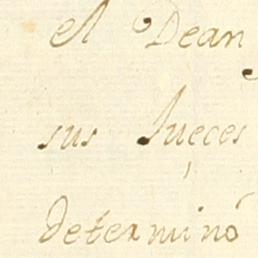 el Dean
sus Jueces
determinó